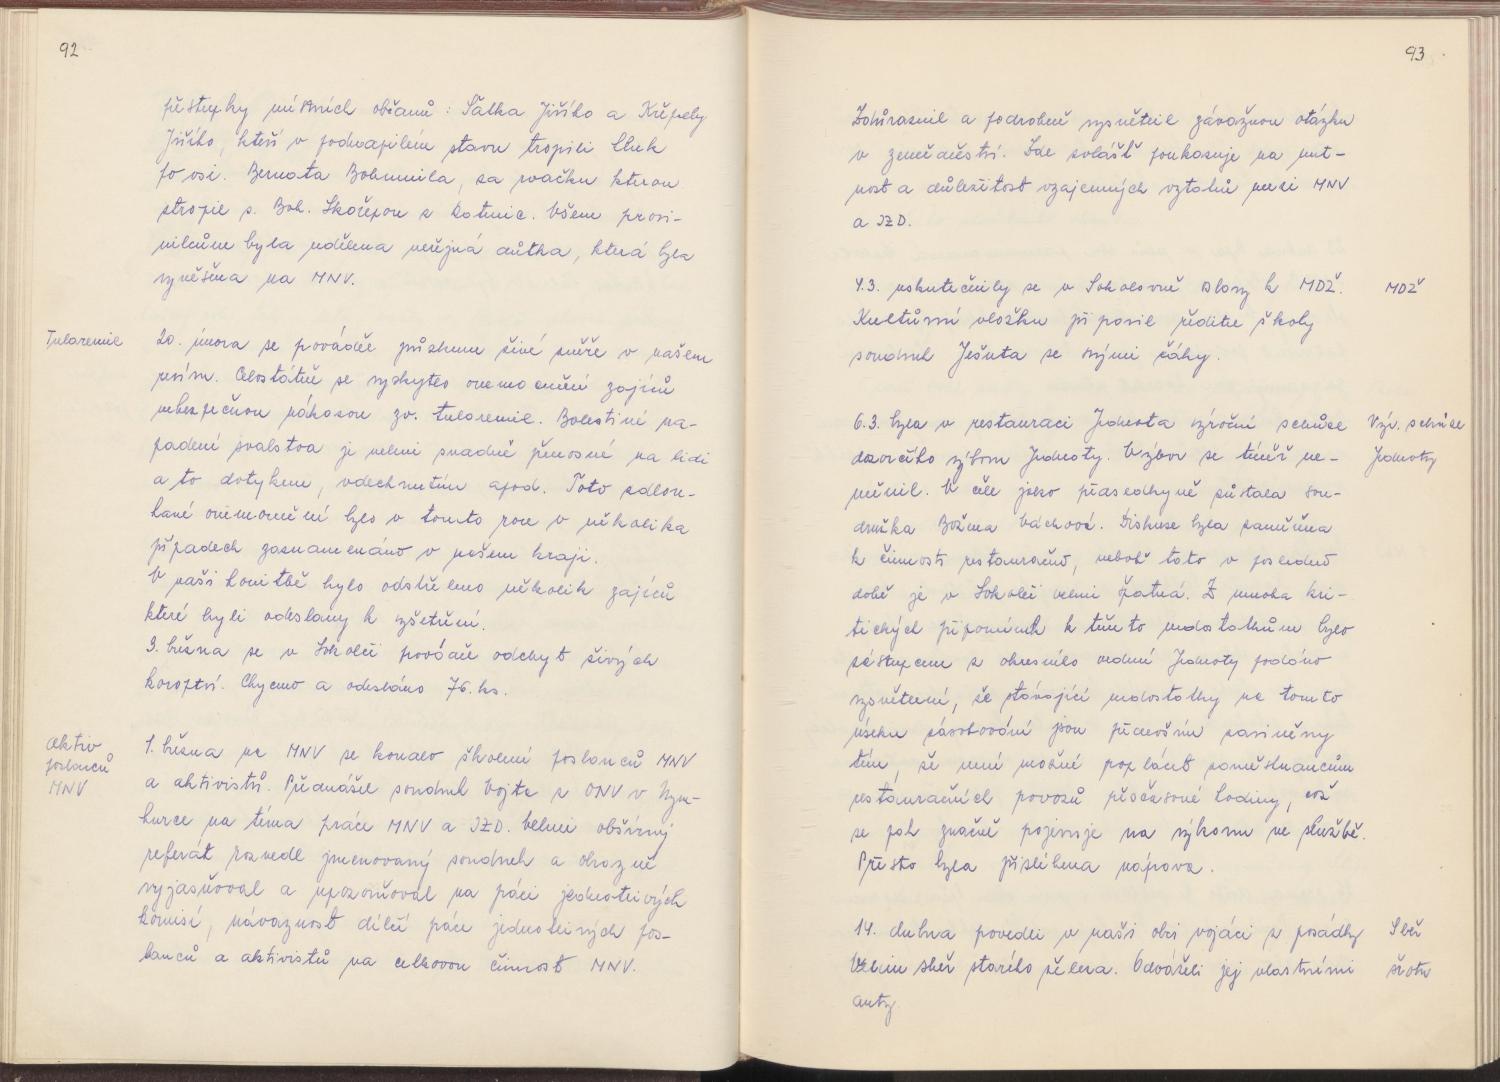 92
přestupky místních občanů: Šálka Jiřího a Křepely
Jiřího, kteří v podnapilém stavu tropili hluk
po vsi. Bernata Bohumila, za rvačku kterou
ztropil s. Boh. Skořepou z Ratenic. Všem provi-
nilcům byla udělena veřejná důtka, která byla
vyvěšena na MNV.
Tularemie
20. února se prováděl průzkum živé zvěře v našem
revíru. Celostátně se vyskytlo onemocnění zajíců
nebezpečnou nákazou zv. tularemie. Bolestivé na-
padení svalstva je velmi snadně přenosné na lidi
a to dotykem, vdechnutím apod. Toto zdlou-
havé onemocnění bylo v tomto roce v několika
případech zaznamenáno v našem kraji.
V naší honitbě bylo odstřeleno několik zajíců
které byli odeslány k vyšetření.
3. března se v Sokolči prováděl odchyt živých
koroptví. Chyceno a odesláno 76. ks.
Aktiv
poslanců
MNV
1. března na MNV se konalo školení poslanců MNV
a aktivistů. Přednášel soudruh Vojta z ONV v Nym-
burce na téma práce MNV a JZD. Velmi obšírný
referát rozvedl jmenovaný soudruh a obrazně
vyjasňoval a upozorňoval na práci jednotlivých
komisí, návaznost dílčí práce jednotlivých pos-
lanců a aktivistů na celkovou činnost MNV.
93
Zdůraznil a podrobně vysvětlil závažnou otázku
v zemědělství. Zde zvlášť poukazuje na nut-
nost a důležitost vzájemných vztahů mezi MNV
a JZD.
4.3. uskutečnily se v Sokolovně oslavy k MDŽ.
MDŽ
Kulturní vložku připravil ředitel školy
soudruh Ješuta se svými žáky.
6.3. byla v restauraci Jednota výroční schůze
Výr. schůze
dozorčího výboru Jednoty. Výbor se téměř ne-
Jednoty
měnil. V čele jako předsedkyně zůstala sou-
družka Božena Váchová. Diskuse byla zaměřena
k činnosti restaurační, neboť tato v poslední
době je v Sokolči velmi špatná. Z mnoha kri-
tických připomínek k těmto nedostatkům bylo
zástupcem z okresního vedení Jednoty podáno
vysvětlení, že stávající nedostatky na tomto
úseku zásobování jsou především zaviněny
tím, že není možné proplácet zaměstnancům
restauračních provozů přesčasové hodiny, což
se pak značně projevuje na výkonu ve službě.
Přesto byla přislíbena náprava.
14. dubna provedli v naší obci vojáci z posádky
Sběr
Velim sběr starého železa. Odváželi jej vlastními
šrotu
auty.